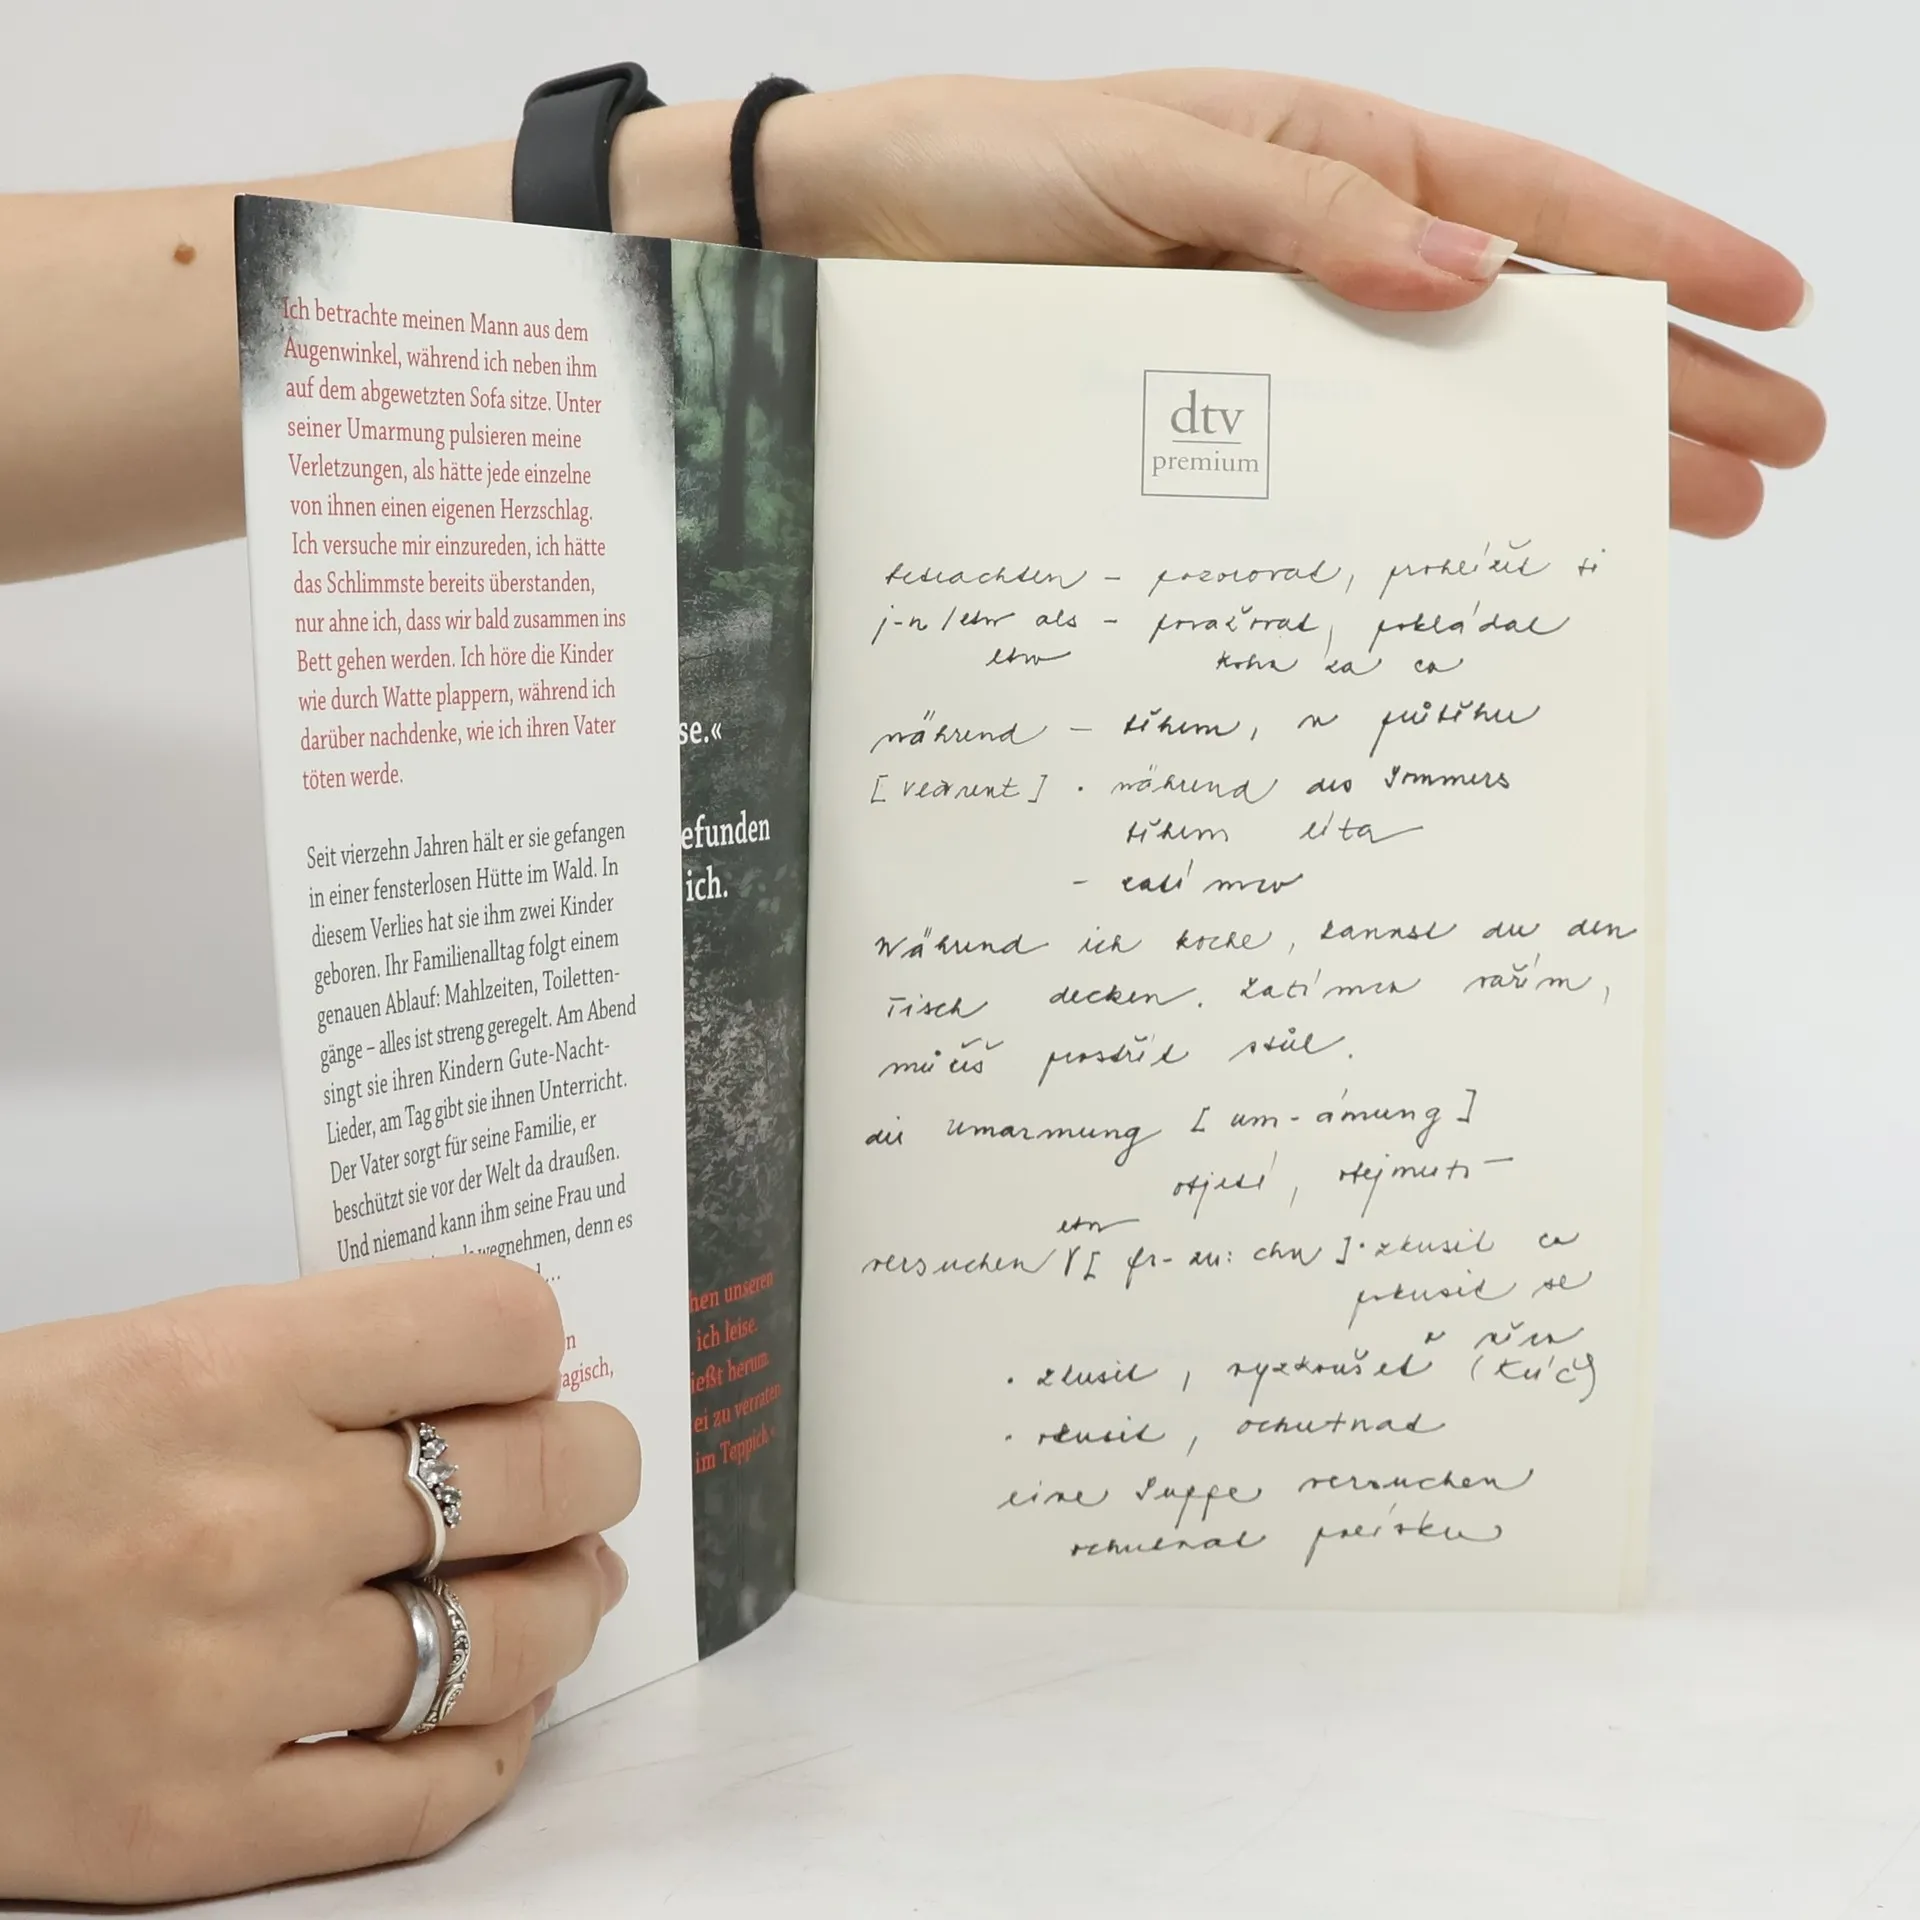 Ich betrachte meinen Mann aus dem
Augenwinkel, während ich neben ihm
auf dem abgewetzten Sofa sitze. Unter
seiner Umarmung pulsieren meine
Verletzungen, als hätte jede einzelne
von ihnen einen eigenen Herzschlag.
Ich versuche mir einzureden, ich hätte
das Schlimmste bereits überstanden,
nur ahne ich, dass wir bald zusammen ins
Bett gehen werden. Ich höre die Kinder
wie durch Watte plappern, während ich
darüber nachdenke, wie ich ihren Vater
töten werde.
Seit vierzehn Jahren hält er sie gefangen
in einer fensterlosen Hütte im Wald. In
diesem Verlies hat sie ihm zwei Kinder
geboren. Ihr Familienalltag folgt einem
genauen Ablauf: Mahlzeiten, Toiletten-
gänge – alles ist streng geregelt. Am Abend
singt sie ihren Kindern Gute-Nacht-
Lieder, am Tag gibt sie ihnen Unterricht.
Der Vater sorgt für seine Familie, er
beschützt sie vor der Welt da draußen.
Und niemand kann ihm seine Frau und
wegnehmen, denn es
...
n
agisch,
se.«
efunden
ich.
hen unseren
ich leise.
ießt herum.
ei zu verraten
im Teppich.«
dtv
premium
betrachten – pozorovat, prohlížet si
j-n / etw als – považovat, pokládat
etw koho za co
während – během, v průběhu
[ ] • während des Sommers
během léta
– zatímco
Während ich koche, kannst du den
Tisch decken. Zatímco vařím,
můžeš prostřít stůl.
die Umarmung [ um-ámung ]
objetí, obejmutí
etw
versuchen [ fr-zu: chn ] • zkusit co
pokusit se
o něco
• zkusit, vyzkoušet (klíč)
• okusit, ochutnat
eine Suppe versuchen
ochutnat polévku